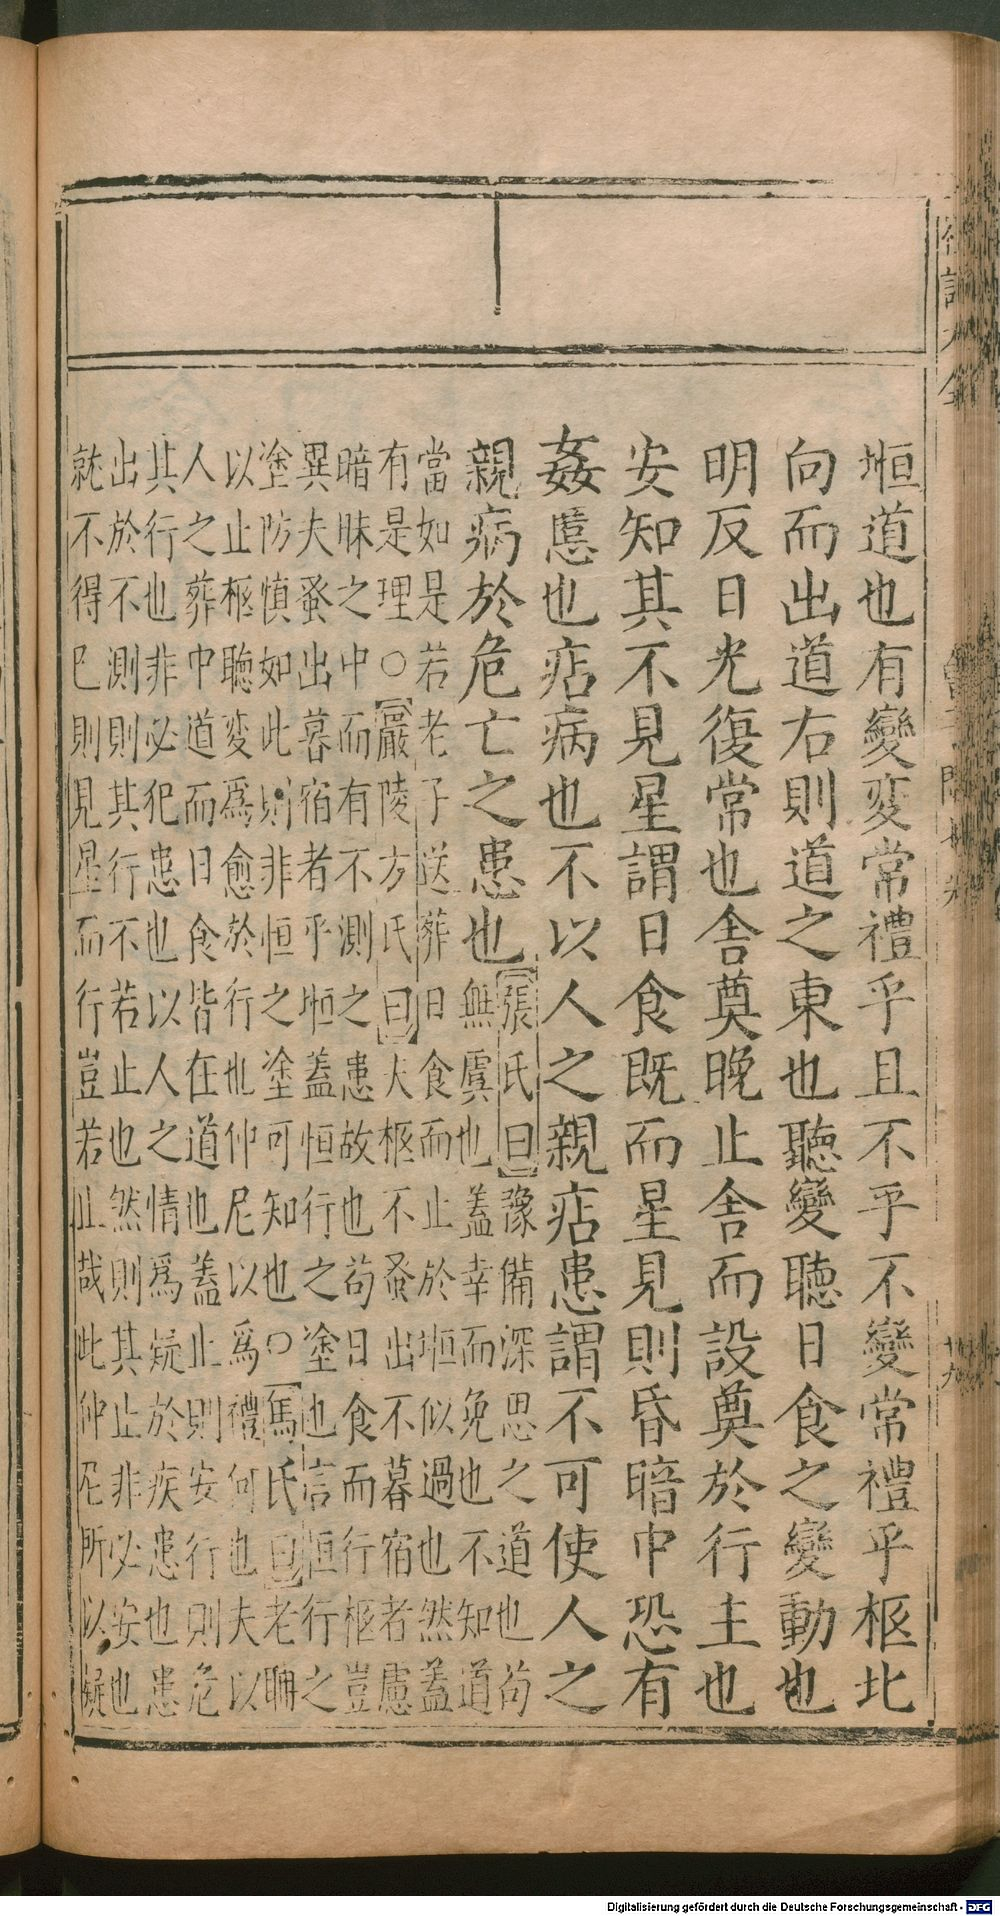 堩道也有變変常禮乎且不乎不變常禮乎柩北
向而出道右則道之東也聽變聽日食之變動也
明反日光復常也舍奠晚止舍而設奠於行主也
安知其不見星謂日食既而星見則昏暗中恐有
姦慝也痁病也不以人之親痁患謂不可使人之
親病於危亡之患也
張氏曰豫備深思之道也苟
無虞也蓋幸而免也不知道
當如是若老子送葬日食而止於堩似過也然蓋
有是理○嚴陵方氏曰大柩不蚤出不暮宿者慮
暗昧之中而有不測之患故也苟日食而行柩豈
異夫蚤出暮宿者乎堩蓋恒行之塗也言恒行之
塗防慎如此則非恒之塗可知也○馬氏曰老聃
以止柩聽変爲愈於行也仲尼以爲禮何也夫以
人之葬中道而日食皆在道也蓋止則安行則危
其行也非必犯患也以人之情爲疑於疾患也患
出於不測則其行不若止也然則其止非必安也
就不得已則見星而行豈若止哉此仲尼所以疑
Digitalisierung gefördert durch die Deutsche Forschungsgemeinschaft - DFG